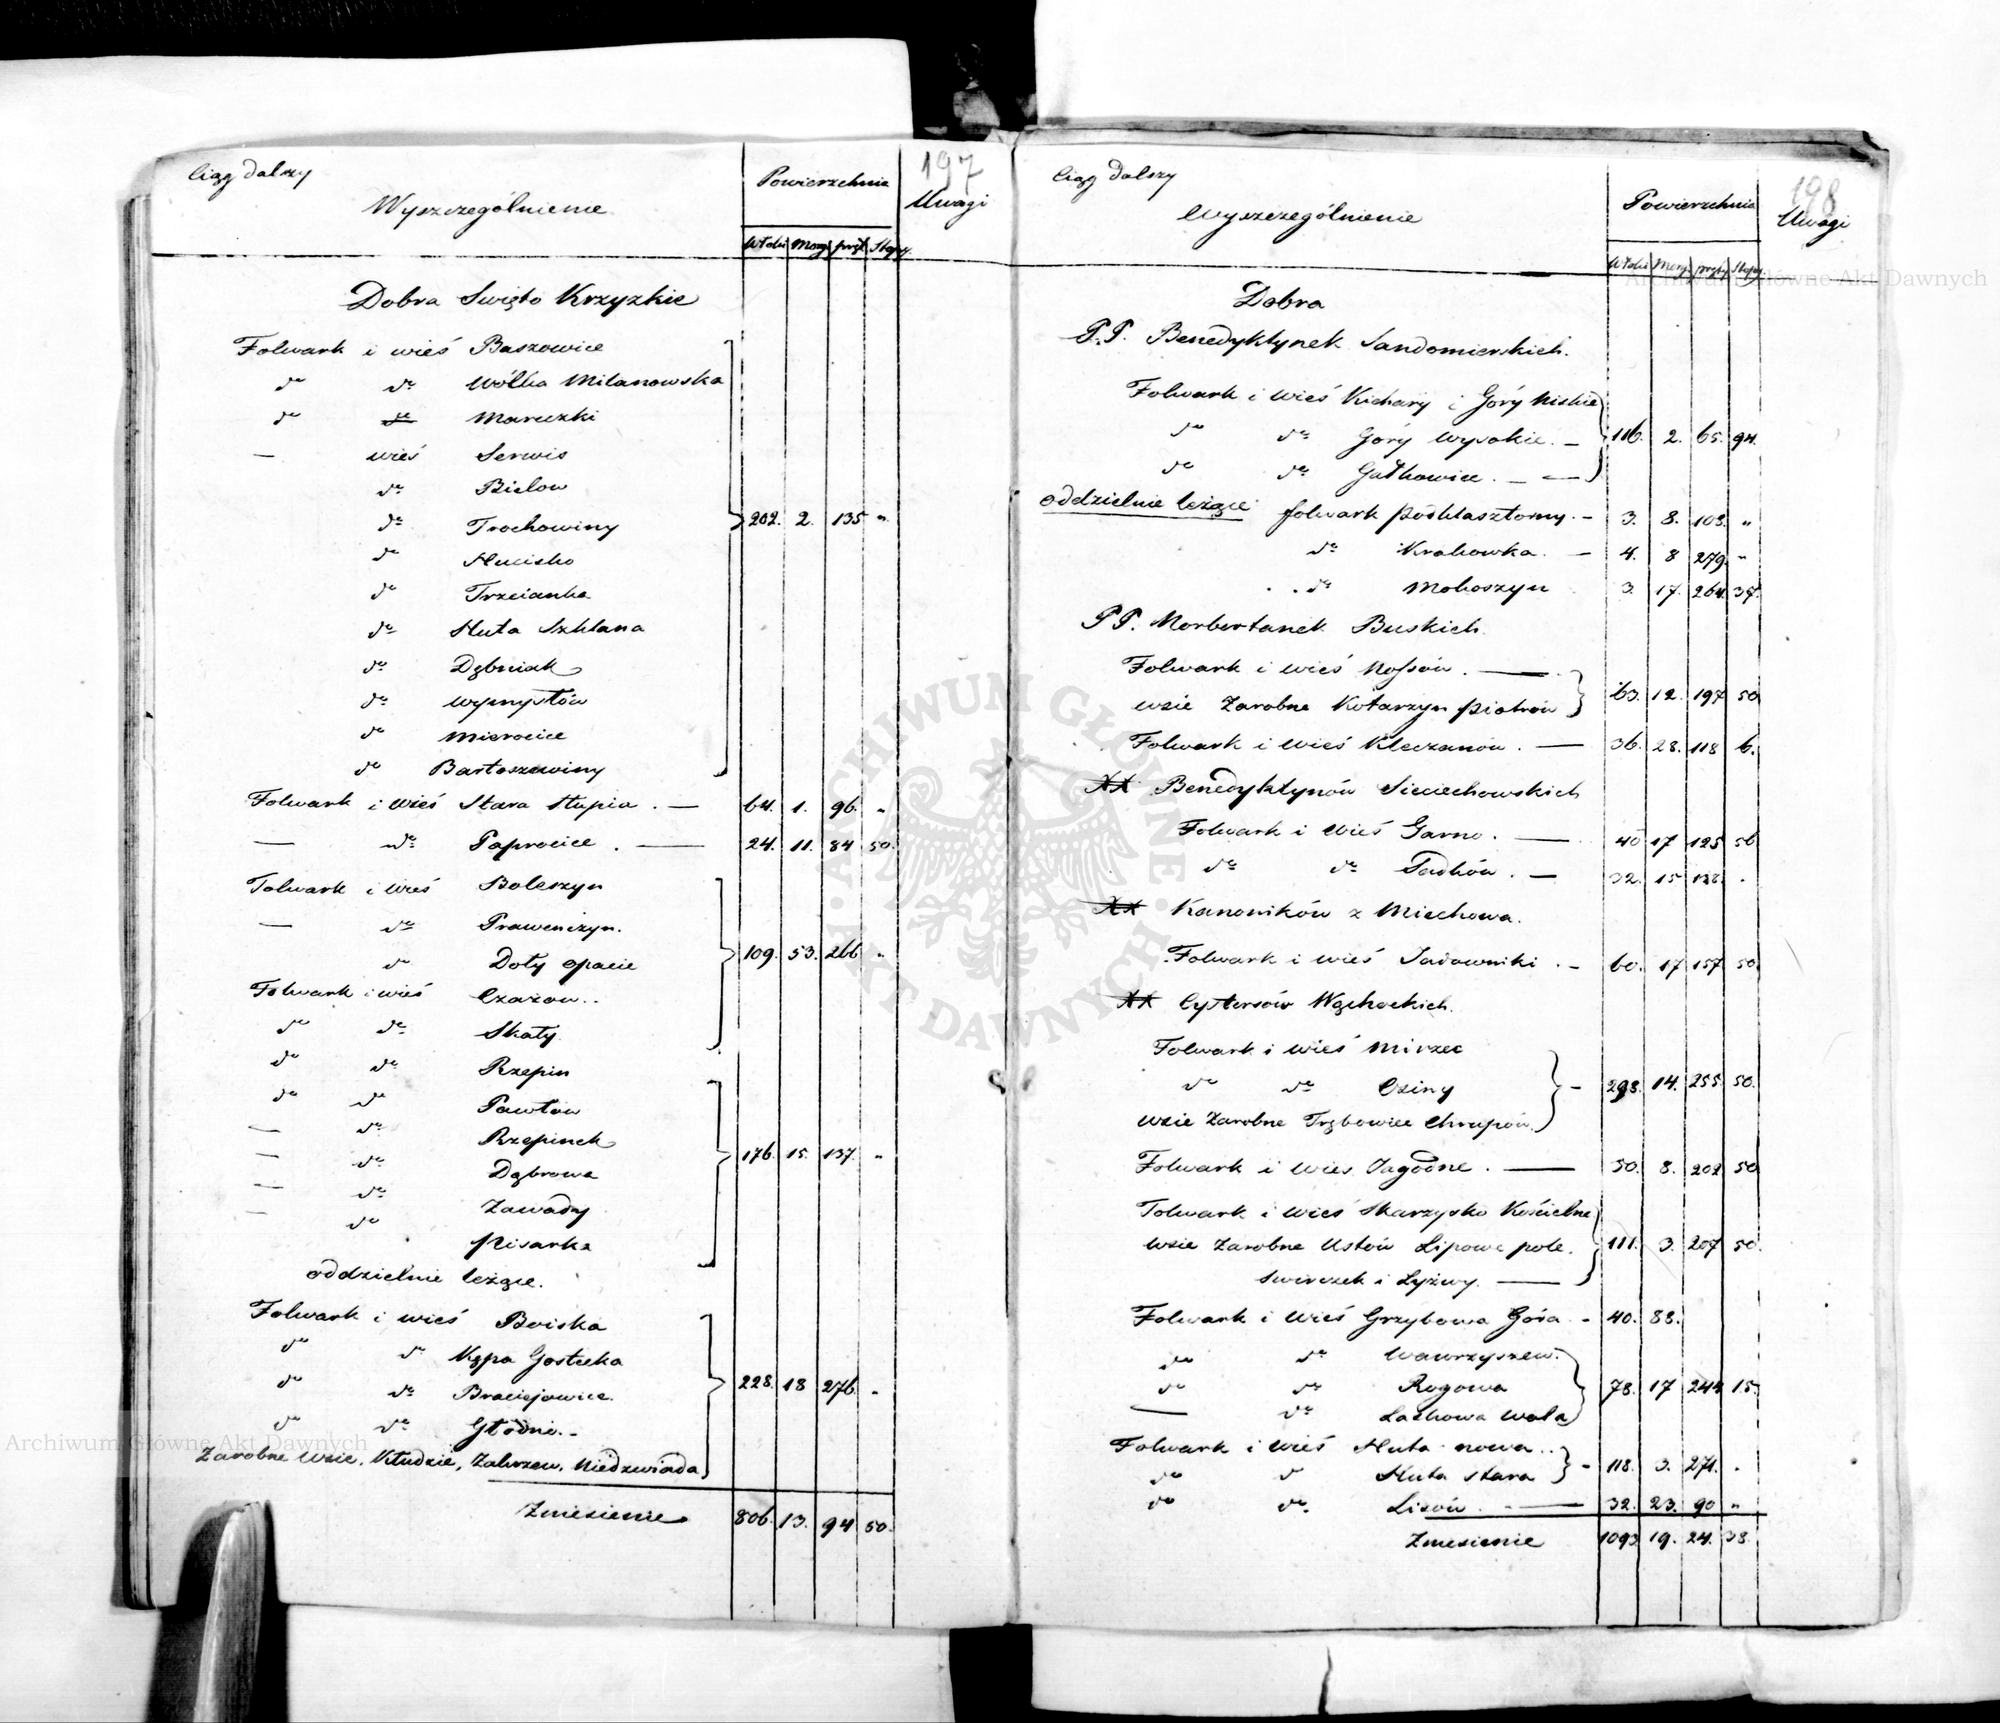 Ciąg dalszy
197
Wyszczególnienie
Powierzchnia
Uwagi
Włóki Morg pręt Stopy
Dobra Swięto Krzyzkie
Folwark i wieś Baszowice
do do Wólka Milanowska
do do Mareczki
— wieś Serwis
do Bielow
do Trochowiny
202. 2. 135 "
do Hucisko
do Trzcianka
do Huta Szklana
do Dębniak
do Wymysłów
do Mierocice
do Bartoszowiny
Folwark i wieś Stara Słupia . — 64. 1. 96. "
— do Paprocice . — 24. 11. 84 50.
Folwark i wieś Boleszyn
— do Prawenczyn.
do Doły opacie
109. 53. 266 "
Folwark i wieś Czazow..
do do Skały
do do Rzepin
do do Pawłow
— do Rzepinek
176. 15. 137. "
— do Dąbrowa
— do Zawady
— do Pisarka
oddzielnie leżące.
Folwark i wieś Boiska
do do Kępa Gostecka
228. 18 276. "
do do Braciejowice.
do do Głodno.-
Zarobne Wsie, Kłudzie, Zakrzew, Niedzwiada
Zniesienie 806. 13. 94 50.
Ciąg dalszy
198
Wyszczególnienie
Powierzchnia
Uwagi
Włóki Morg pręty Stopy
Dobra
P.P. Benedyktynek Sandomierskich.
Folwark i wieś Kichary i Góry Niskie
do do Góry Wysokie. — 116. 2. 65. 94.
do do Gałkowice. — —
oddzielnie leżące folwark podklasztorny. – 3. 8. 103. "
do Krakowka. — 4. 8 279. "
do Mokoszyn 3. 17. 264. 37.
P P. Norbertanek Buskich.
Folwark i wieś Nossów . —
wsie Zarobne Kotarzyn Piotrów 63. 12. 197 50
Folwark i wieś Kleczanów . — 36. 28. 118 6.
XX Benedyktynów Sieciechowskich
Folwark i wieś Garno . — 40 17 125 50
do do Sadków . — 32. 15 138. "
XX Kanoników z Miechowa.
Folwark i wieś Jadowniki . – 60. 17 157 50.
XX Cystersów Wąchockich.
Folwark i wieś Mirzec
do do Osiny – 298. 14. 255. 50.
wsie Zarobne Trębowiec Chrupów.
Folwark i wieś Jagodne . — 50. 8. 202 50
Folwark i wieś Skarzysko Kościelne
wsie Zarobne Ustów Lipowe pole. 111. 3. 207 50.
Swirczek i Lyżwy. —
Folwark i wieś Grzybowa Góra – 40. 88.
do do Wawrzyszew.
do do Rogowa 78. 17 244 15.
— do Lachowa Wola
Folwark i wieś Huta nowa..
do d Huta stara – 118. 3. 271. "
do do Lisów. — 32. 23. 90 "
Zniesienie 1093 19. 24. 38.
Archiwum Główne Akt Dawnych
Archiwum Główne Akt Dawnych
ARCHIWUM GŁÓWNE · AKT DAWNYCH ·